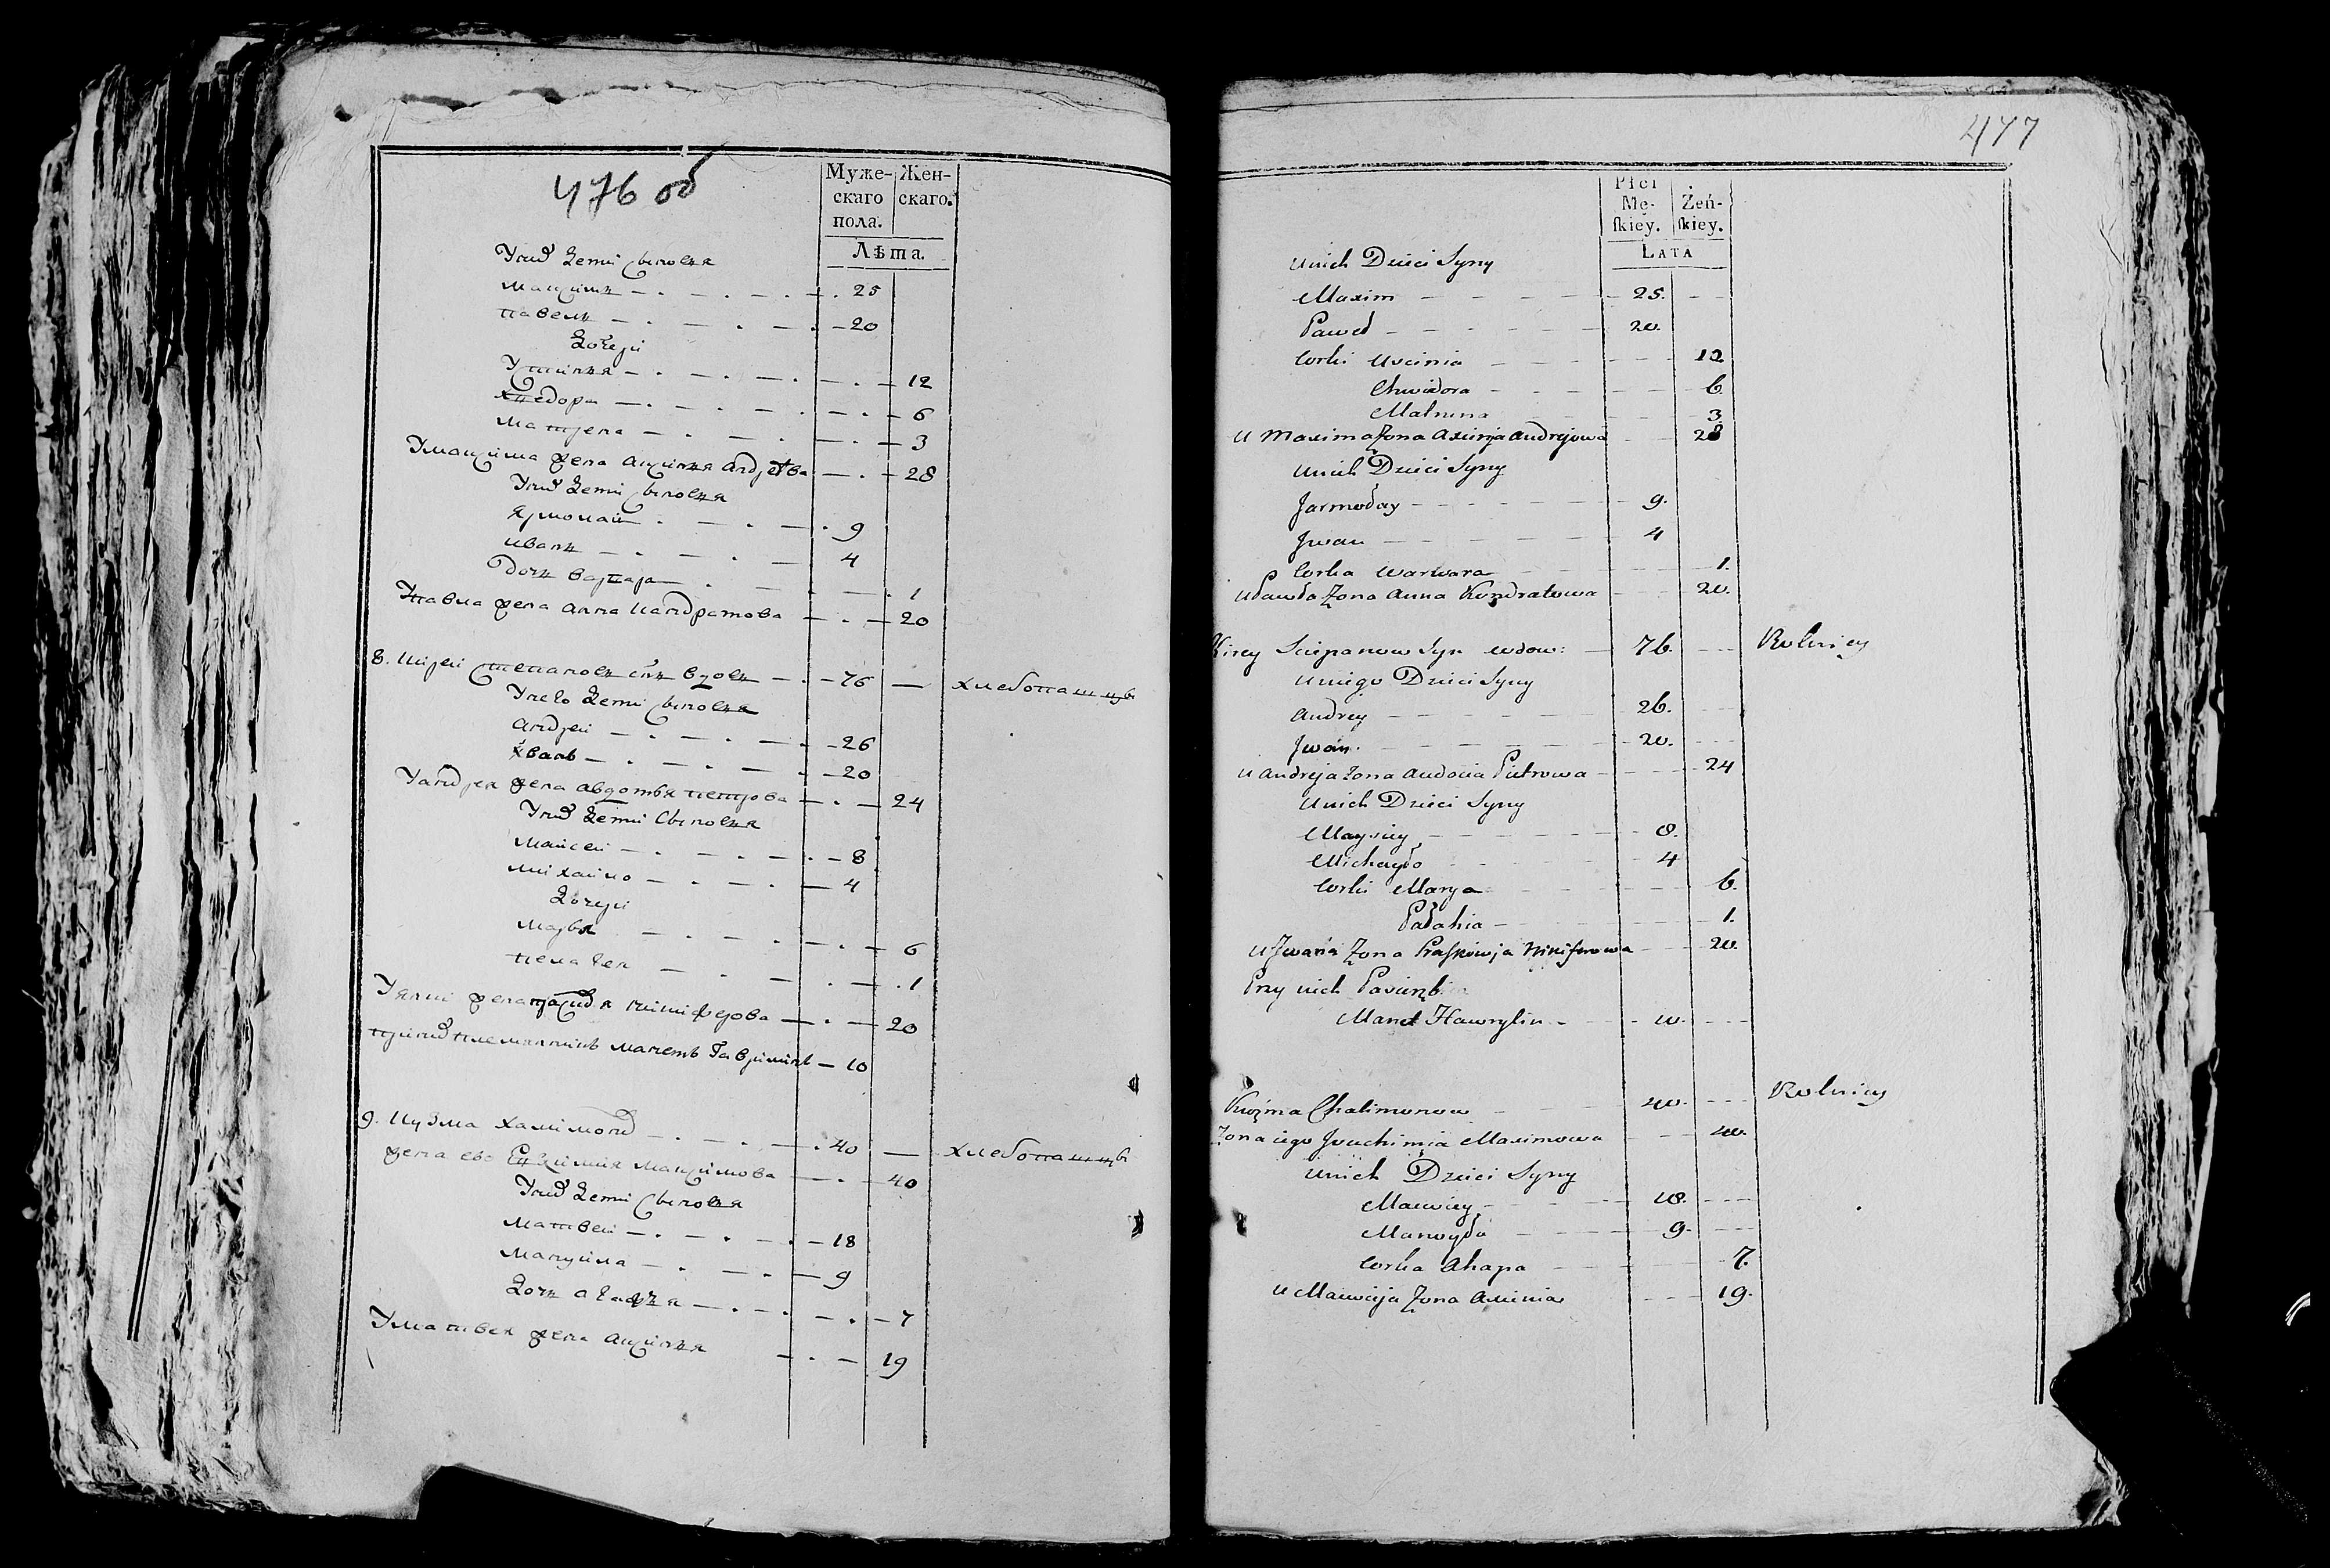 476 об
Муже-
скаго
пола.
Жен-
скаго.
Лѣта.
У них дети Сыновья
Максимъ 25
павелъ 20
дочери
Устинья 12
хведора 6
матрена 3
У максима жена аксинья андреева 28
У них дети Сыновья
ярмолаи 9
иванъ 4
дочь варвара 1
У павла жена анна кандратова 20
8. кирей степановъ сынъ вдовъ 76 — хлебопашцы
У него дети Сыновья
андреи 26
иванъ 20
У андрея жена авдотья петрова 24
У них дети Сыновья
маисеи 8
михаило 4
дочери
марья 6
пелагея 1
У ивана жена никифорова 20
при них племянникъ Гаврилинъ 10
9. кузма халимонов 40 — хлебопашцы
жена ево Ефимия максимова 40
У них дети Сыновья
матвеи 18
мануила 9
дочь 7
У матвея жена аксинья 19
477
Płci
Mę-
ſkiey.
Żeń-
ſkiey.
LATA
u nich Dzieci Syny
Maxim 25.
Paweł 20.
Corki Uscinia 12
Chwiedora 6.
Matruna 3
u Maxima Zona Axinja Andrejowa 28
u nich Dzieci Syny
Jarmołay 9.
Jwan 4
Corka Warwara 1.
u Pawła Zona Anna Kondratowa 20.
Kirey Sciepanow Syn wdow: 76. Rolnicy
u niego Dzieci Syny
Andrey 26.
Jwan. 20.
u Andreja Zona Audocia Pietrowa 24
u nich Dzieci Syny
Maysiey 8.
Michayło 4
Corki Marya 6.
Pałahia 1.
u Jwana Zona Praskowja Nikiforowa 20.
Przy nich Pasierzb
Hawrylin 10.
Kuźma Chalimonow 40. Rolnicy
Zona iego Jeuchimia Maximowa 40.
u nich Dzieci Syny
Maciwiey 18.
Manuyła 9.
Corka Ahapa 7.
u Maciwieja Zona Axinia 19.